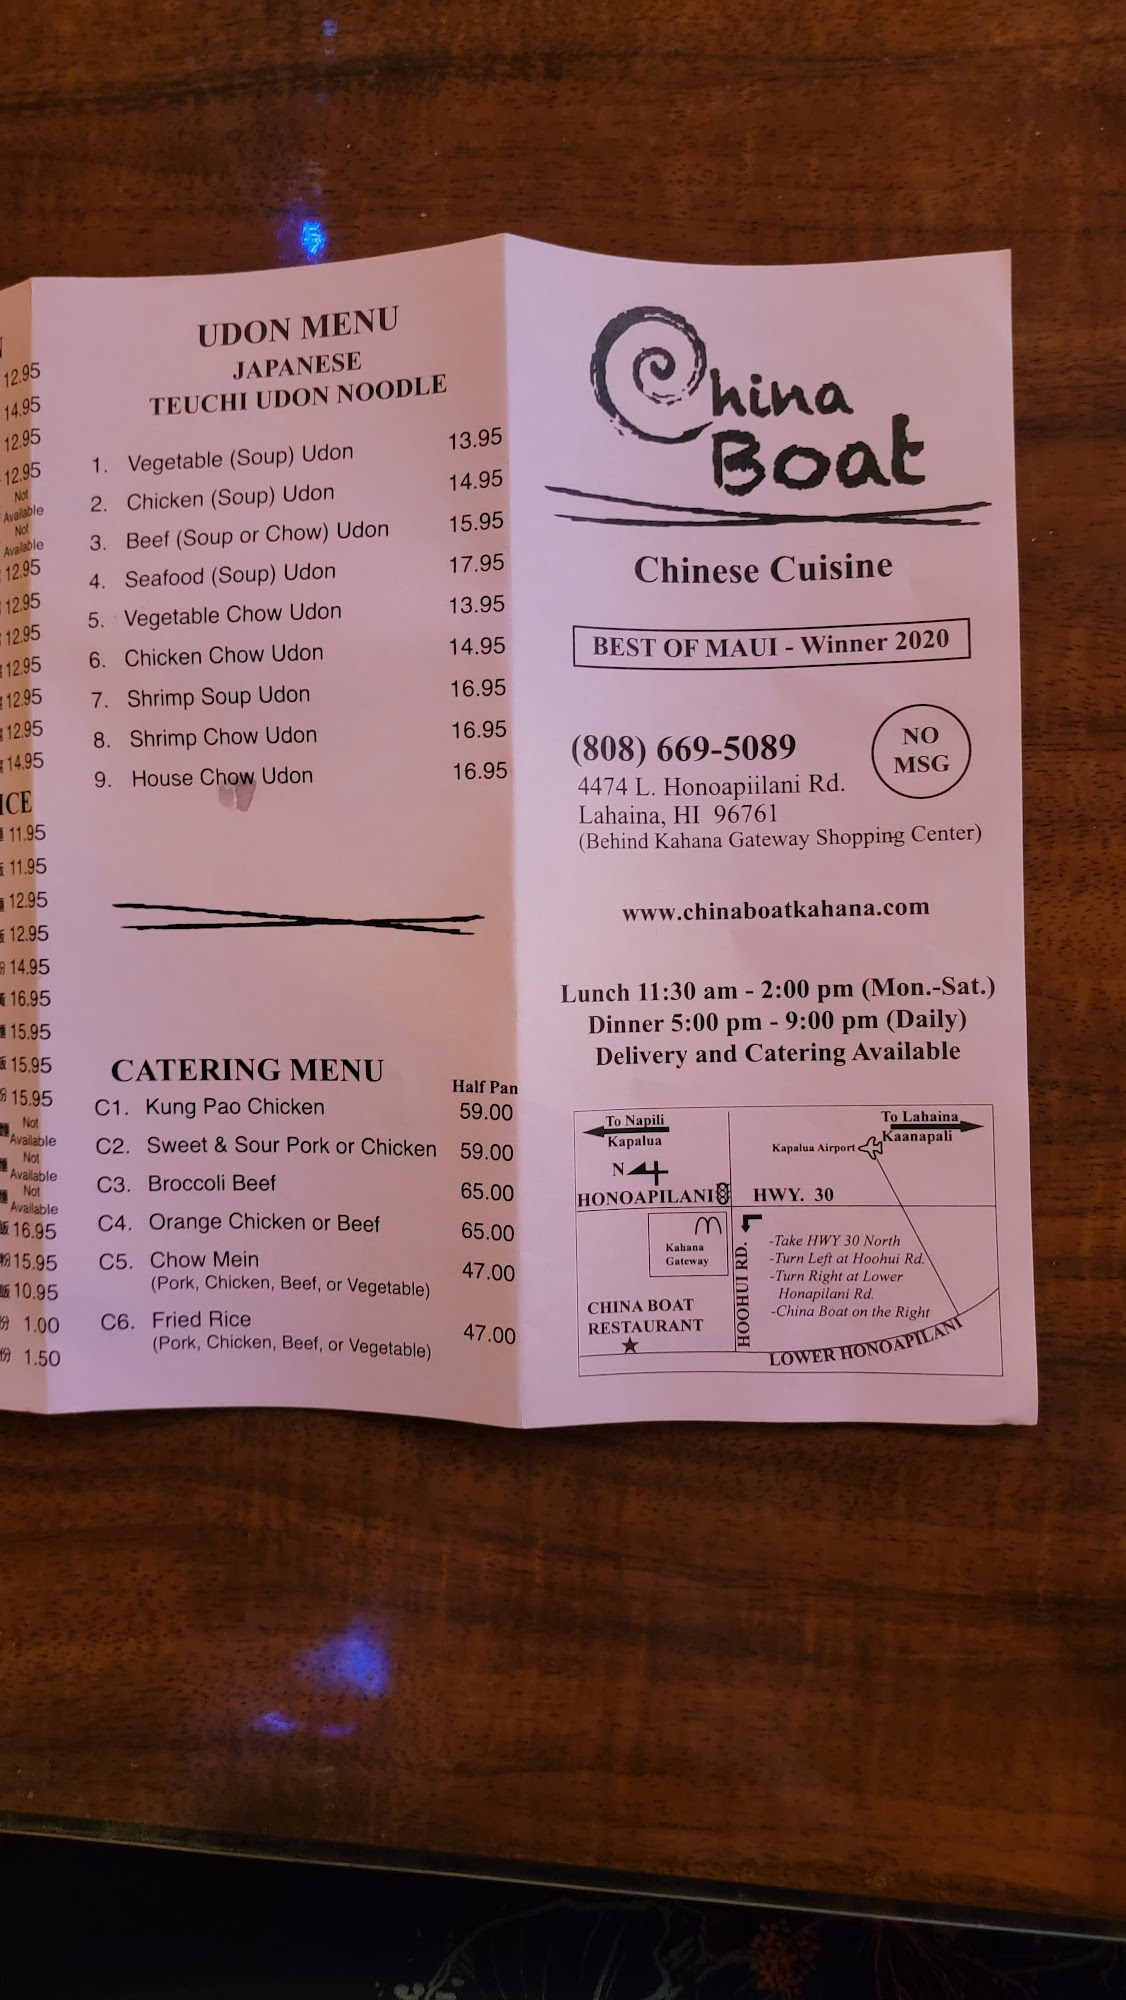 12.95
14.95
12.95
12.95
Not
Available
Not
Available
12.95
12.95
12.95
12.95
12.95
12.95
14.95
ICE
11.95
11.95
12.95
12.95
14.95
16.95
15.95
15.95
15.95
Not
Available
Not
Available
Not
Available
飯 16.95
粉 15.95
飯 10.95
份 1.00
份 1.50
UDON MENU
JAPANESE
TEUCHI UDON NOODLE
1. Vegetable (Soup) Udon 13.95
2. Chicken (Soup) Udon 14.95
3. Beef (Soup or Chow) Udon 15.95
4. Seafood (Soup) Udon 17.95
5. Vegetable Chow Udon 13.95
6. Chicken Chow Udon 14.95
7. Shrimp Soup Udon 16.95
8. Shrimp Chow Udon 16.95
9. House Chow Udon 16.95
CATERING MENU
Half Pan
C1. Kung Pao Chicken 59.00
C2. Sweet & Sour Pork or Chicken 59.00
C3. Broccoli Beef 65.00
C4. Orange Chicken or Beef 65.00
C5. Chow Mein 47.00
(Pork, Chicken, Beef, or Vegetable)
C6. Fried Rice 47.00
(Pork, Chicken, Beef, or Vegetable)
China
Boat
Chinese Cuisine
BEST OF MAUI - Winner 2020
(808) 669-5089
NO
MSG
4474 L. Honoapiilani Rd.
Lahaina, HI 96761
(Behind Kahana Gateway Shopping Center)
www.chinaboatkahana.com
Lunch 11:30 am - 2:00 pm (Mon.-Sat.)
Dinner 5:00 pm - 9:00 pm (Daily)
Delivery and Catering Available
To Napili
Kapalua
To Lahaina
Kaanapali
Kapalua Airport
N
HONOAPILANI HWY. 30
Kahana
Gateway
HOOHUI RD.
-Take HWY 30 North
-Turn Left at Hoohui Rd.
-Turn Right at Lower
Honapilani Rd.
-China Boat on the Right
CHINA BOAT
RESTAURANT
LOWER HONOAPILANI